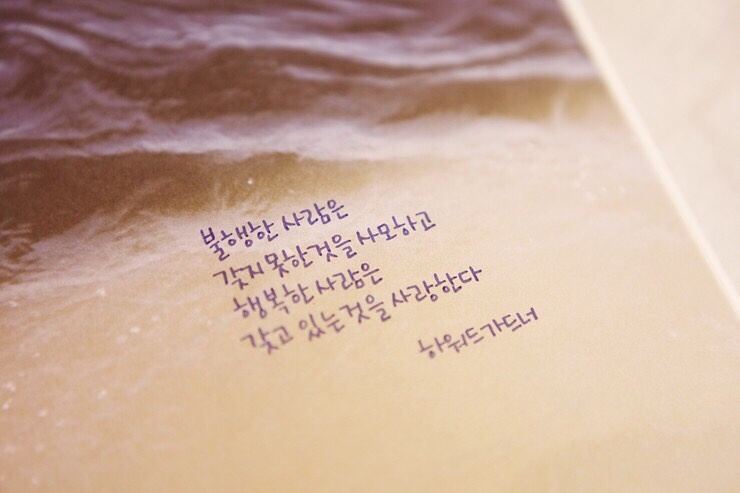 불행한 사람은
갖지 못한것을 사모하고
행복한 사람은
갖고 있는것을 사랑한다
하워드가드너